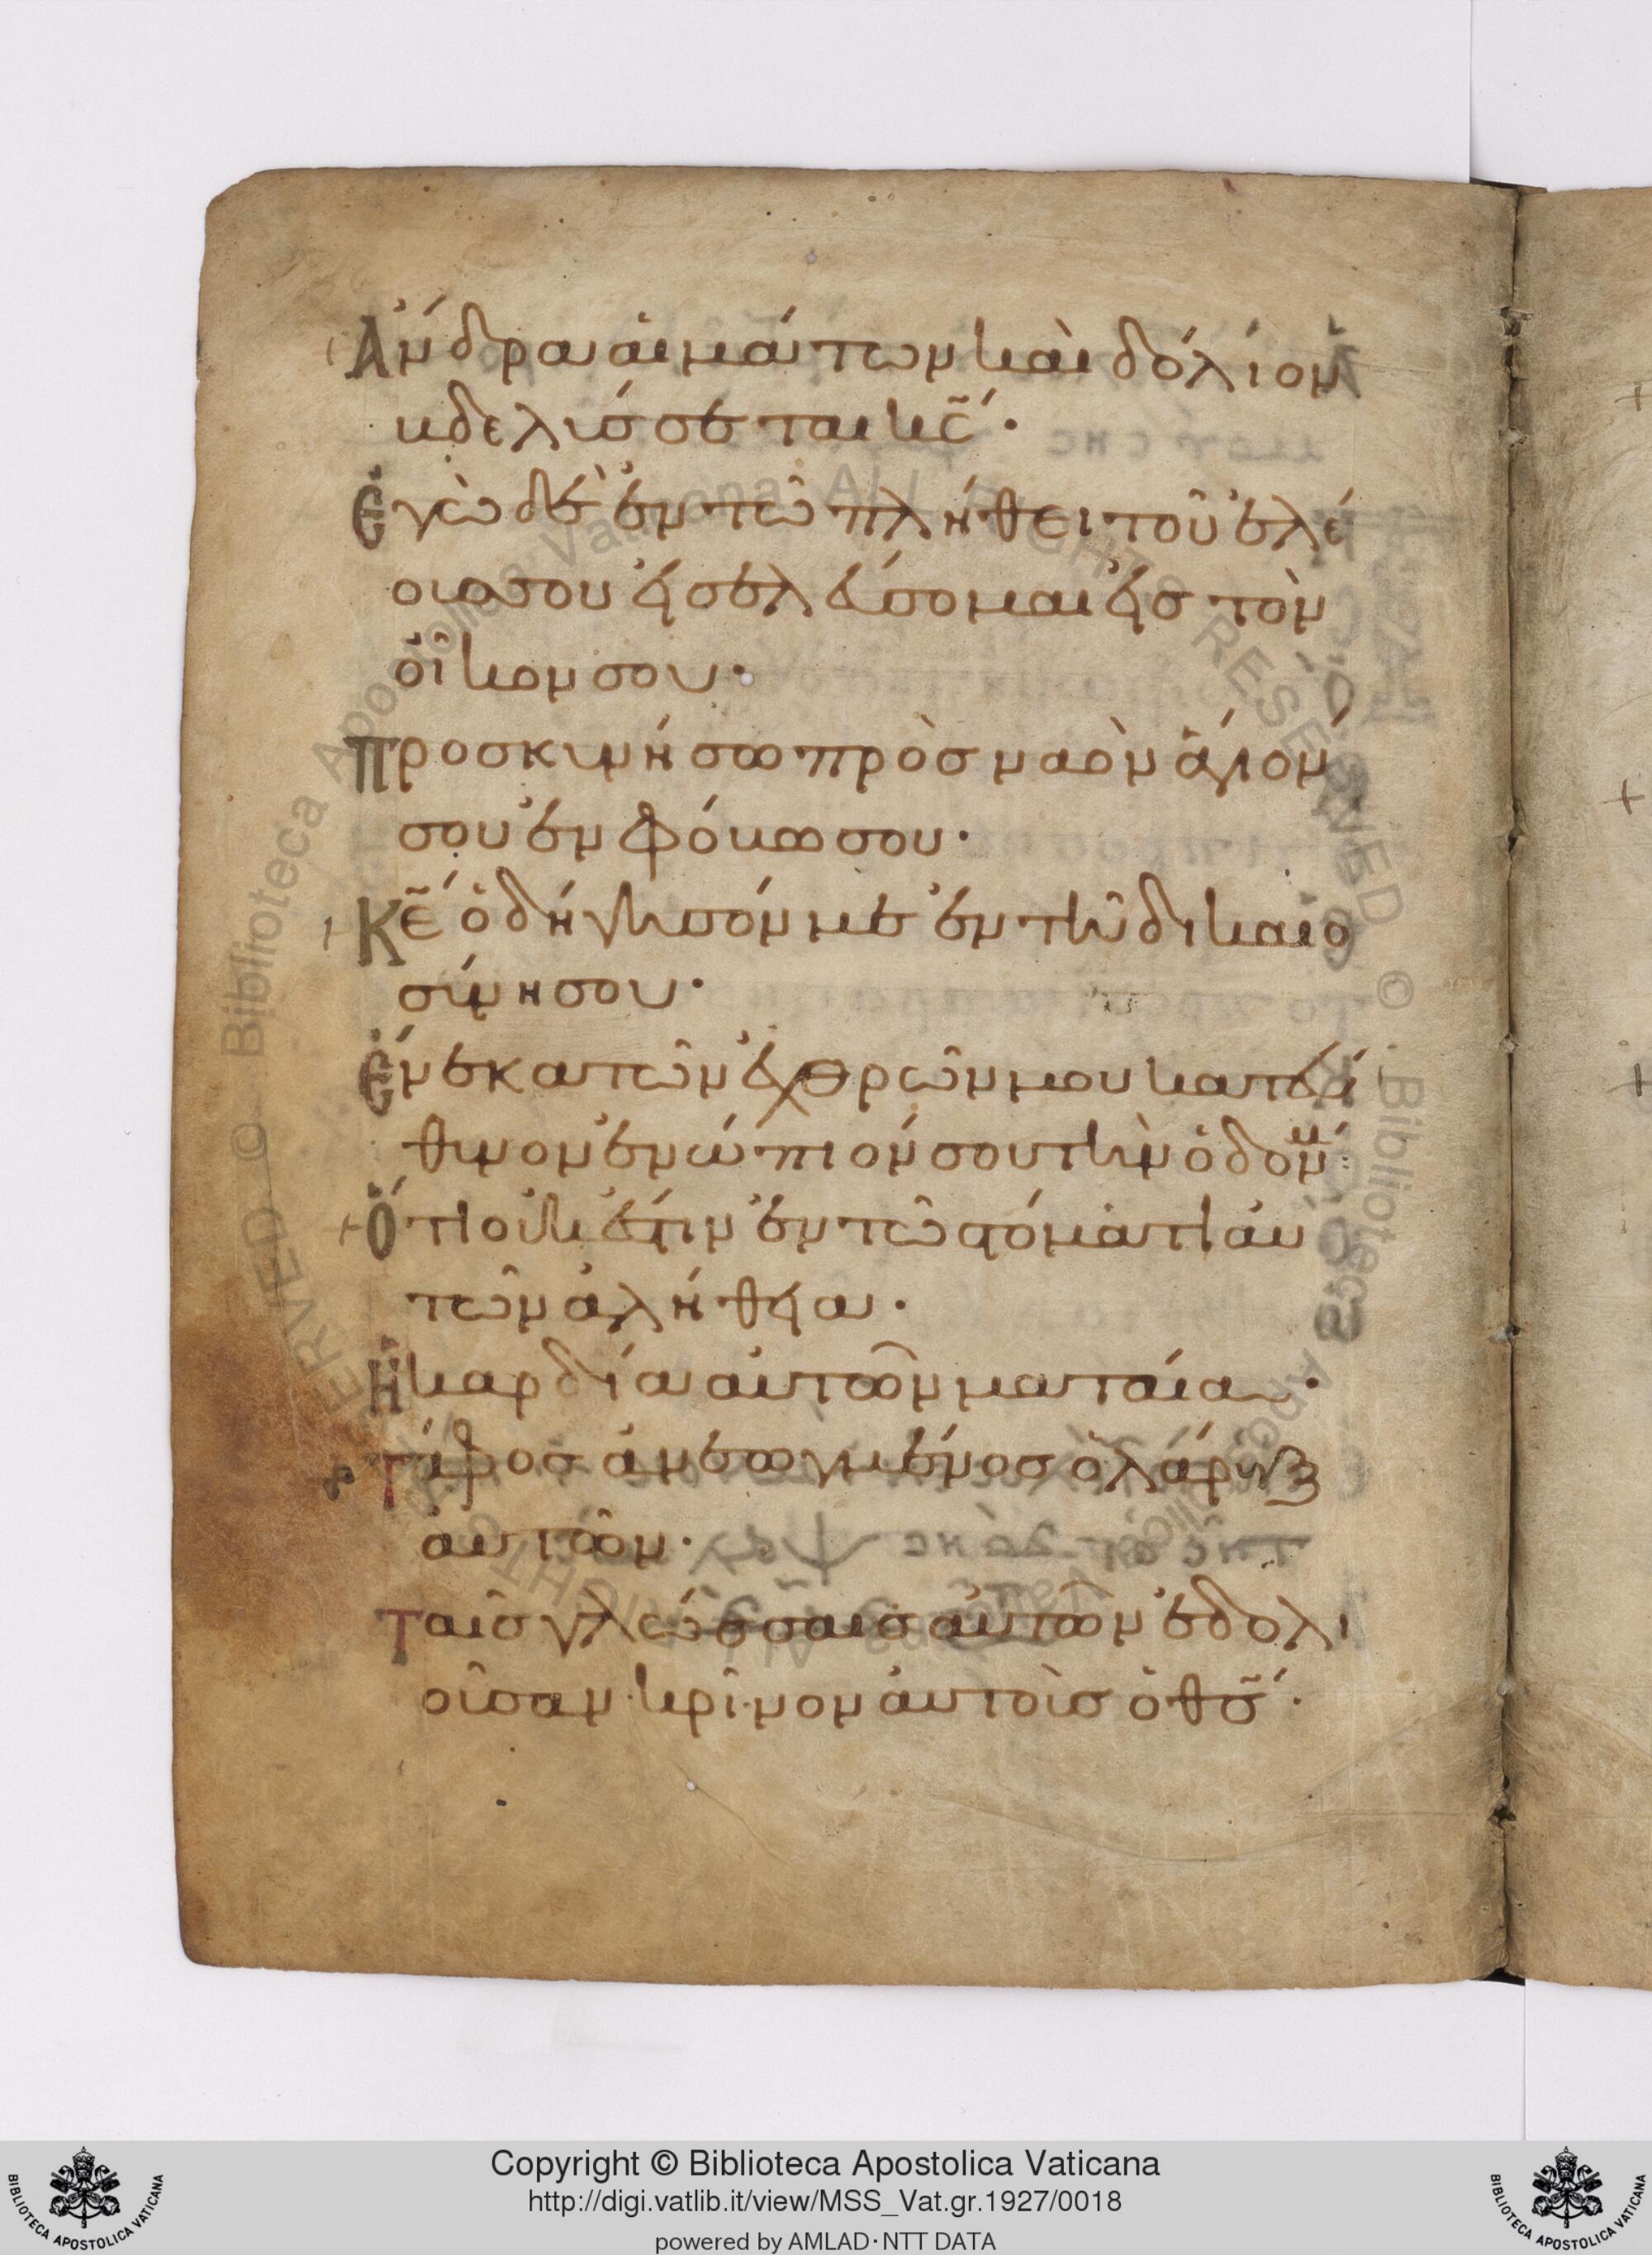 Ἄνδρα αἱμάτων καὶ δόλιον
βδελύσσεται κς̄·
Ἐγὼ δὲ ἐν τῶ πλήθει τοῦ ἐλέ
ους σου εἰσελεύσομαι εἰς τὸν
οἶκον σου·
Προσκυνήσω πρὸς ναὸν ἅγιόν
σου ἐν φόβω σου·
Κε̄ ὁδήγησόν με ἐν τῆ δικαιο
σύνη σου·
Ἕνεκα τῶν ἐχθρῶν μου κατεύ
θυνον ἐνώπιόν σου τὴν ὁδόν μου
Ὅτι οὐκ ἔστιν ἐν τῶ στόματι αὐ
τῶν ἀλήθεια·
Ἡ καρδία αὐτῶν ματαία·
Τάφος ἀνεωγμένος ὁ λάρυγξ
αὐτῶν·
Ταῖς γλώσσαις αὐτῶν ἐδολι
οῦσαν κρῖνον αὐτοὺς ὁ θς̄·
Copyright © Biblioteca Apostolica Vaticana
http://digi.vatlib.it/view/MSS_Vat.gr.1927/0018
powered by AMLAD·NTT DATA
BIBLIOTECA APOSTOLICA VATICANA
BIBLIOTECA APOSTOLICA VATICANA